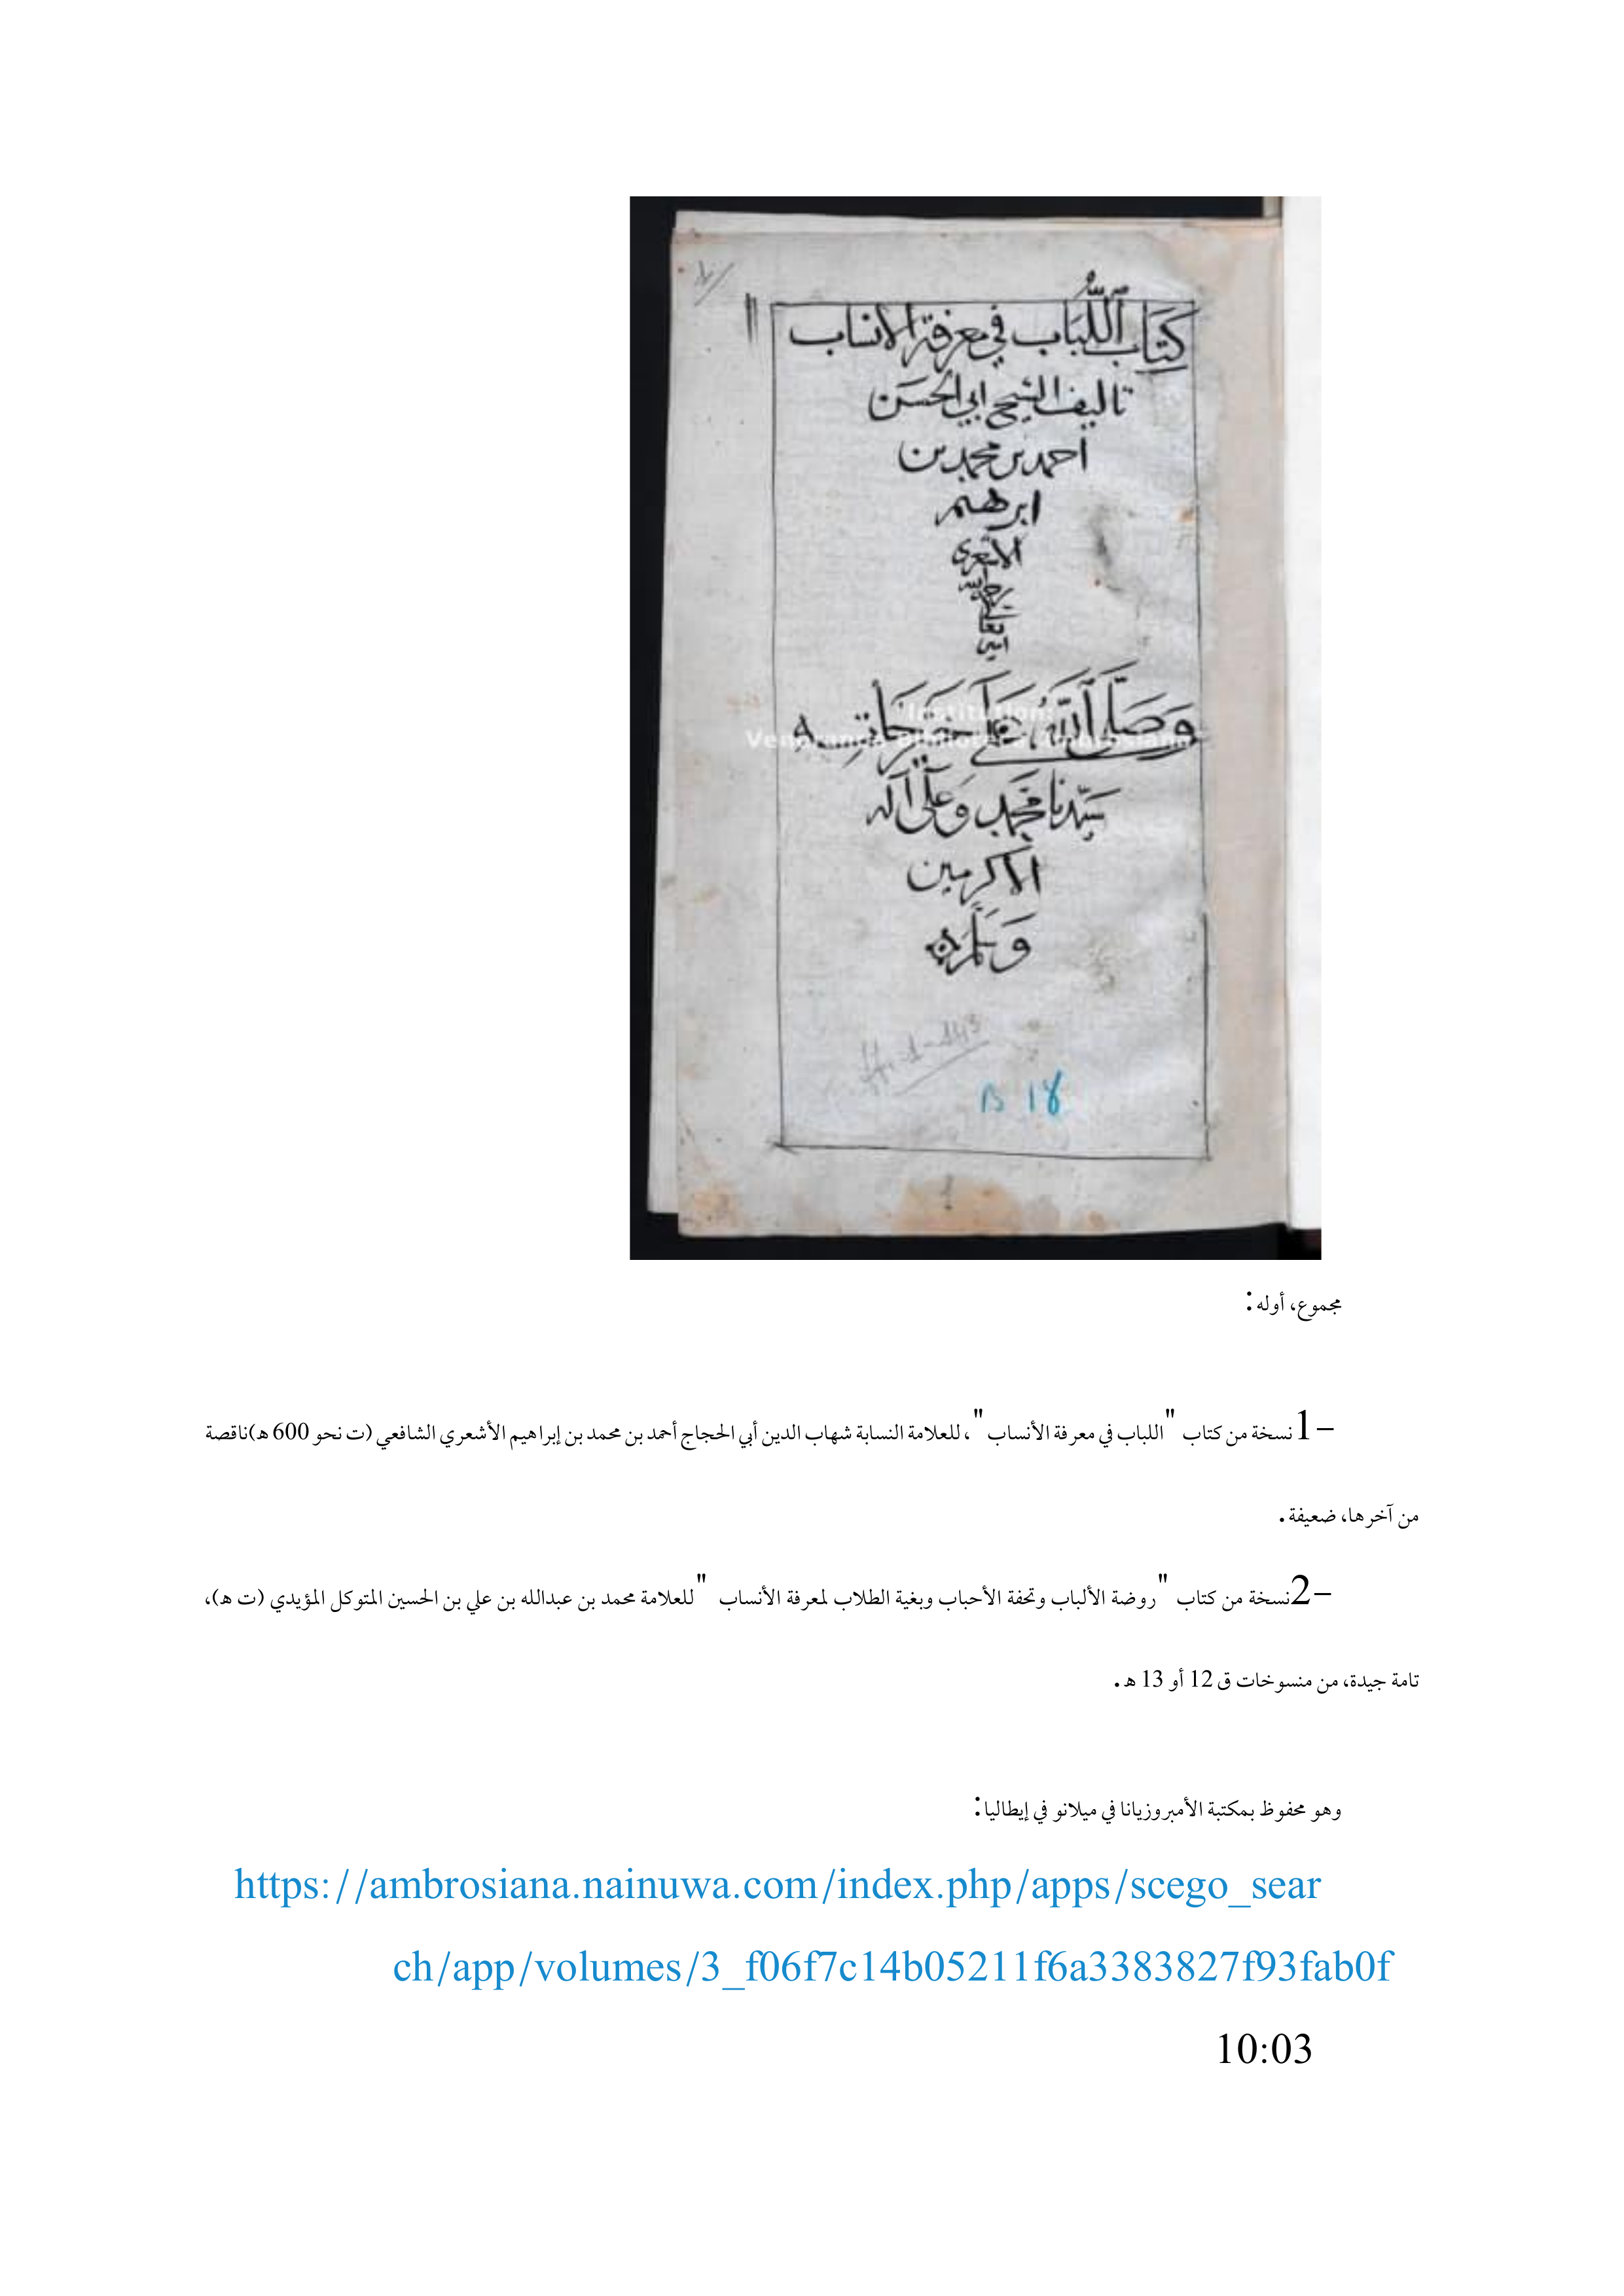 كتاب اللباب في معرفة الانساب
تاليف الشيخ ابي الحسن
احمد بن محمد بن
ابرهيم
الاشعري
رحمه الله
تعالى
امين
وَصَلَّى اللَّهُ عَلَى خَيْرِ خَاتِمِهِ
سيّدنا محمد وعلى آله
الاكرمين
وَسلم
Institution:
Veneranda Biblioteca Ambrosiana
B 18
مجموع، أوله:
1- نسخة من كتاب "اللباب في معرفة الأنساب"، للعلامة النسابة شهاب الدين أبي الحجاج أحمد بن محمد بن إبراهيم الأشعري الشافعي (ت نحو 600 هـ)ناقصة
من آخرها، ضعيفة.
2- نسخة من كتاب "روضة الألباب وتحفة الأحباب وبغية الطلاب لمعرفة الأنساب "للعلامة محمد بن عبدالله بن علي بن الحسين المتوكل المؤيدي (ت هـ)،
تامة جيدة، من منسوخات ق 12 أو 13 هـ.
وهو محفوظ بمكتبة الأمبروزيانا في ميلانو في إيطاليا:
https://ambrosiana.nainuwa.com/index.php/apps/scego_sear
ch/app/volumes/3_f06f7c14b05211f6a3383827f93fab0f
10:03